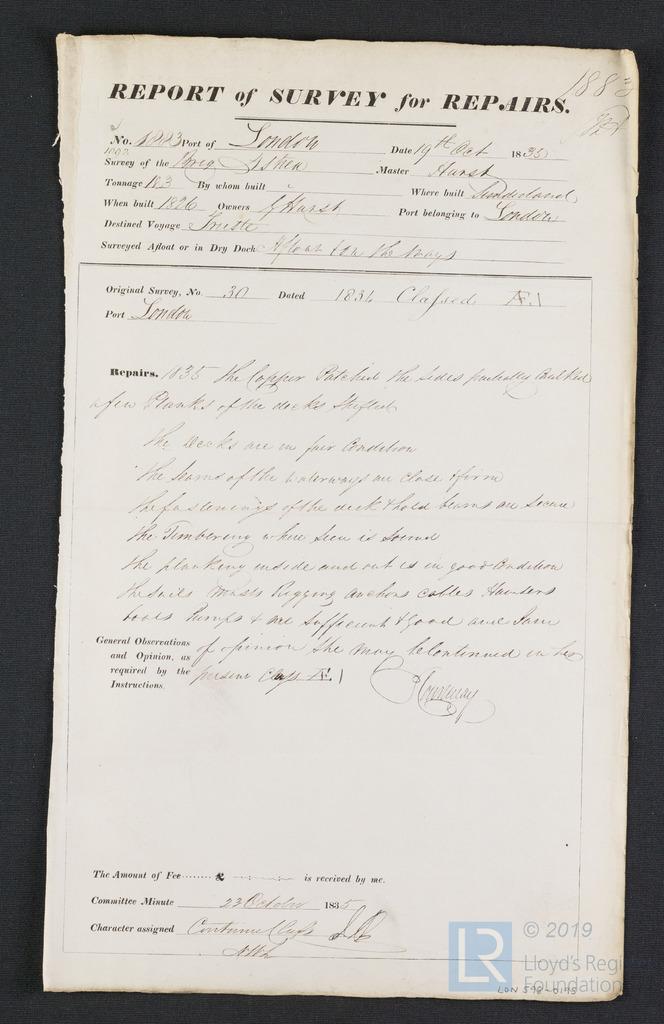 1883
REPORT of SURVEY for REPAIRS.
No. 1883 Port of London Date 19th Oct 1835
Survey of the Brig Master Hurst
Tonnage 183 By whom built Where built Sunderland
When built 1826 Owners J Hurst Port belonging to London
Destined Voyage Trieste
Surveyed Afloat or in Dry Dock Afloat & on the Ways
Original Survey, No. 30 Dated 1834 Classed Æ.1
Port London
Repairs. 1835 The Copper Patched the sides partially Caulked
a few Planks of the decks shifted
The Decks are in fair Condition
The seams of the waterways are close & firm
The fastenings of the deck & hold beams are secure
The Timbering where seen is sound
The planking inside and out is in good Condition
The sails Masts Rigging anchors cables Hawsers
boats Pumps & are sufficient & good and I am
General Observations and Opinion, as required by the Instructions.
of opinion she may be Continued in her
present class Æ.1
Courtenay
The Amount of Fee ........ £ is received by me.
Committee Minute 23 October 1835
Character assigned Continue Class
LR
© 2019
Lloyd's Register
Foundation
LON 598-0195